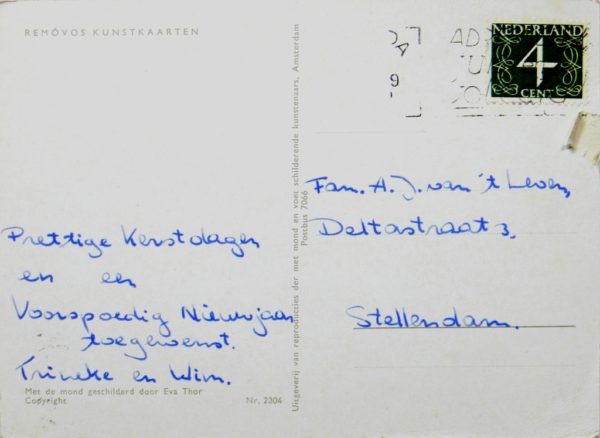 REMÓVOS KUNSTKAARTEN
NEDERLAND
4
CENT
Fam. A. J. van 't Leven,
Deltastraat 3,
Stellendam.
Prettige Kerstdagen
en een
Voorspoedig Nieuwjaar
toegewenst.
Trineke en Wim.
Met de mond geschilderd door Eva Thor
Copyright
Nr. 2304
Uitgeverij van reproducties der met mond en voet schilderende kunstenaars, Amsterdam
Postbus 7066